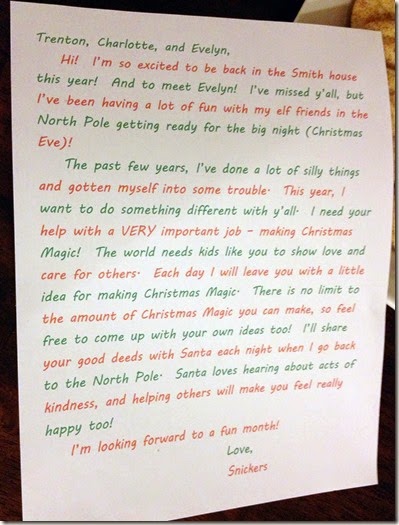 Trenton, Charlotte, and Evelyn,
Hi! I'm so excited to be back in the Smith house
this year! And to meet Evelyn! I've missed y'all, but
I've been having a lot of fun with my elf friends in the
North Pole getting ready for the big night (Christmas
Eve)!
The past few years, I've done a lot of silly things
and gotten myself into some trouble. This year, I
want to do something different with y'all. I need your
help with a VERY important job - making Christmas
Magic! The world needs kids like you to show love and
care for others. Each day I will leave you with a little
idea for making Christmas Magic. There is no limit to
the amount of Christmas Magic you can make, so feel
free to come up with your own ideas too! I'll share
your good deeds with Santa each night when I go back
to the North Pole. Santa loves hearing about acts of
kindness, and helping others will make you feel really
happy too!
I'm looking forward to a fun month!
Love,
Snickers